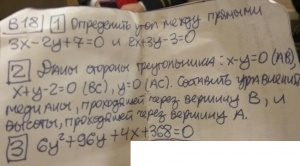 В18 1 Определить угол между прямыми
3x-2y+7=0 и 2x+3y-3=0
2 Даны стороны треугольника: x-y=0 (AB)
x+y-2=0 (BC), y=0 (AC). Составить уравнения
медианы, проходящей через вершину B, и
высоты, проходящей через вершину A.
3 6y²+96y+4x+368=0